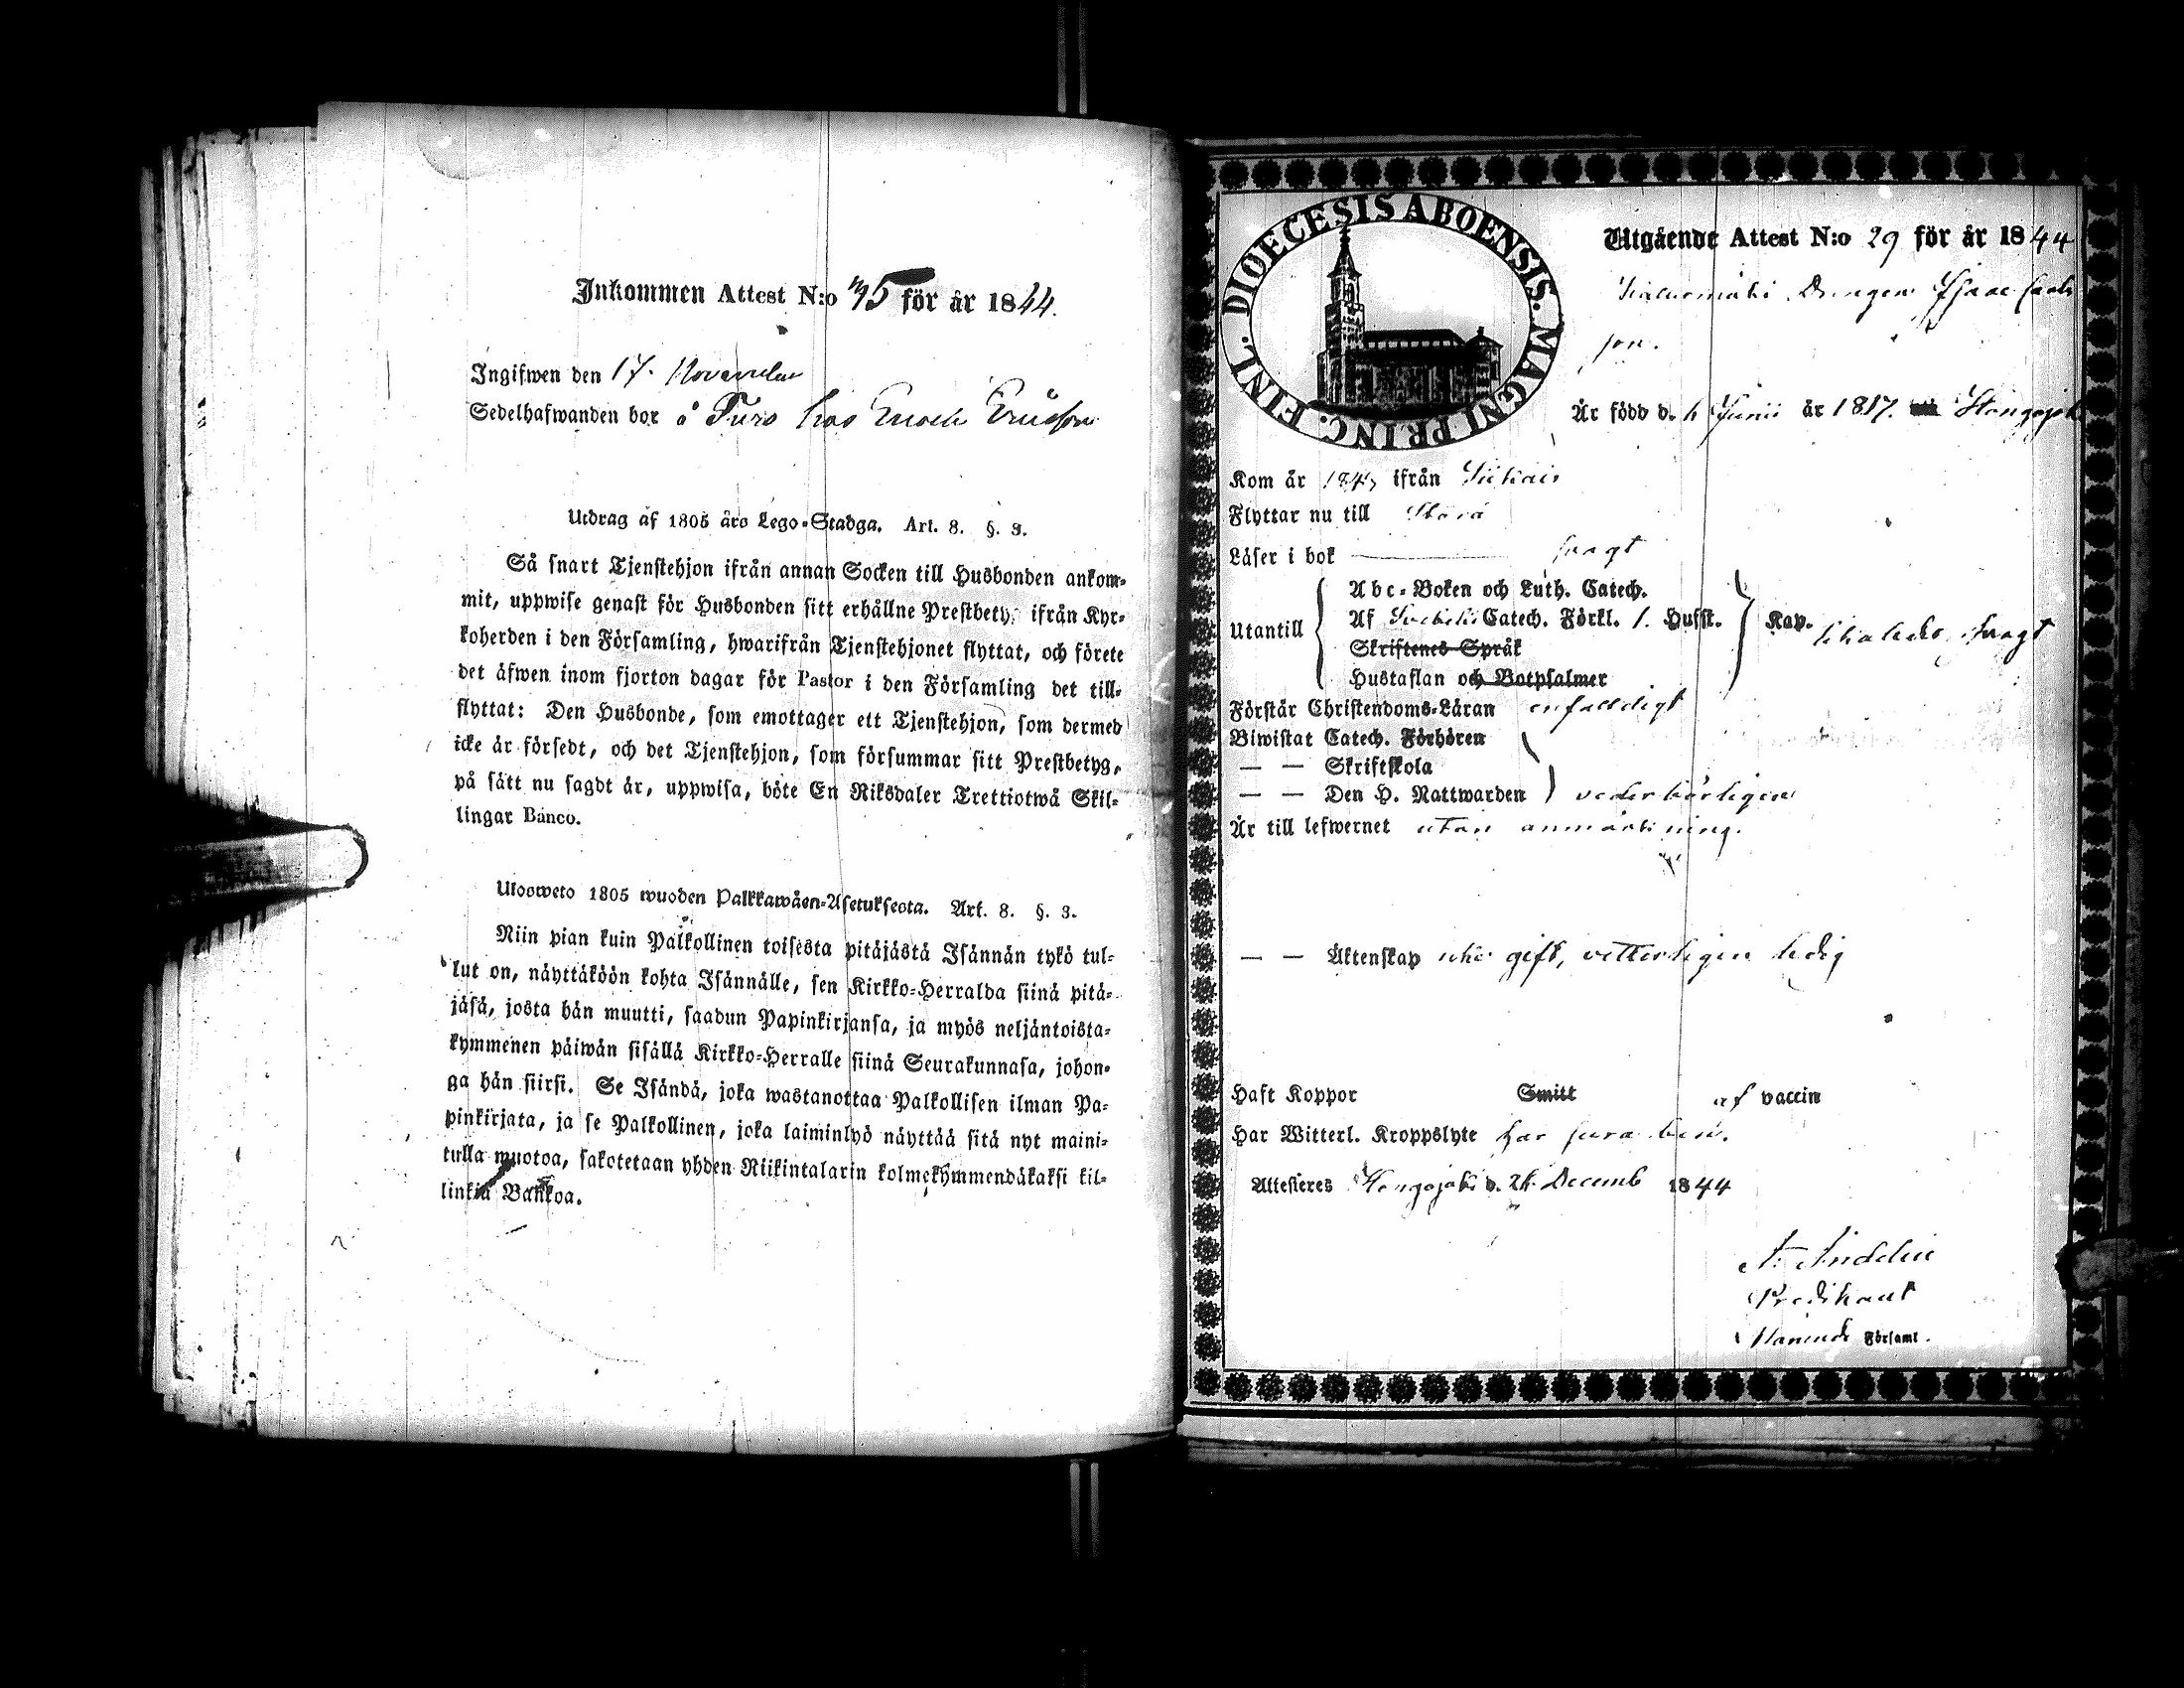 Inkommen Attest N:o 45 för år 1844.
Ingifwen den 17. November
Sedelhafwanden bor å Turs hos Enoch Ericsson
Utdrag af 1805 års Lego-Stadga. Art. 8. §. 3.
Så snart Tjenstehjon ifrån annan Socken till Husbonden ankom-
mit, uppwise genast för Husbonden sitt erhållne Prestbetyg ifrån Kyr-
koherden i den Församling, hwarifrån Tjenstehjonet flyttat, och förete
det äfwen inom fjorton dagar för Pastor i den Församling det till-
flyttat: Den Husbonde, som emottager ett Tjenstehjon, som dermed
icke är försedt, och det Tjenstehjon, som försummar sitt Prestbetyg,
på sätt nu sagdt är, uppwisa, böte En Riksdaler Trettiotwå Skil-
lingar Banco.
Ulosweto 1805 wuoden Palkkawäen-Asetuksesta. Art. 8. §. 3.
Niin pian kuin Palkollinen toisesta pitäjästä Isännän tykö tul-
lut on, näyttäköön kohta Isännälle, sen Kirkko-Herralda siinä pitä-
jäsä, josta hän muutti, saadun Papinkirjansa, ja myös neljäntoista-
kymmenen päiwän sisällä Kirkko-Herralle siinä Seurakunnasa, johon-
ga hän siirsi. Se Isändä, joka wastanottaa Palkollisen ilman Pa-
pinkirjata, ja se Palkollinen, joka laiminlyö näyttää sitä nyt maini-
tulla muotoa, sakotetaan yhden Riikintalarin kolmekymmendäkaksi kil-
linkiä Bankoa.
DIOECESIS ABOENSIS. MAGNI PRINC. FINL.
Utgående Attest N:o 29 för år 1844
Drengen Isaac Isaks
son.
Är född d. 6 Junii år 1817. Hongojoki
Kom år 1843 ifrån Siikais
Flyttar nu till Storå
Läser i bok svagt
Abc-Boken och Luth. Catech.
Utantill Af Svebelii Catech. Förkl. 1. Husst. Kap. svagt
Skriftenes Språk
Hustaflan och Botpsalmer
Förstår Christendoms-Läran enfaldigt
Biwistat Catech. Förhören
— — Skriftskola
— — Den H. Nattwarden vederbörligen
Är till lefwernet utan anmärkning.
— — Äktenskap icke gift, vetterligen ledig
Haft Koppor Smitt af vaccin
Har Witterl. Kroppslyte har sura ben.
Attesteres Hongojoki d. 26 Decemb 1844
Predikant
Församl.